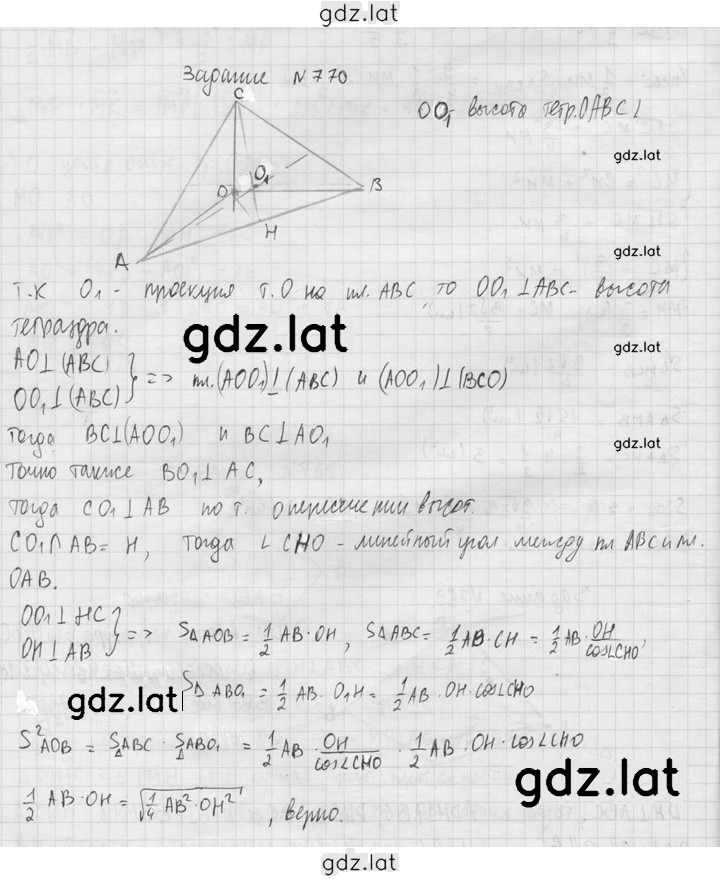 gdz.lat
Задание N770
C
OO₁- высота тетр. OABC ⊥
gdz.lat
O₁
O
B
H
A
gdz.lat
Т.К O₁ - проекция т.О на пл. АВС, то OO₁⊥ABC- высота
тетраэдра.
gdz.lat
gdz.lat
AO⊥(ABC)
OO₁⊥(ABC) } => пл.(AOO₁)⊥(ABC) и (AOO₁)⊥(BCO)
Тогда BC⊥(AOO₁) и BC⊥AO₁
gdz.lat
Точно также BO₁⊥AC,
Тогда CO₁⊥AB по т. о пересечении высот.
CO₁∩AB=H, тогда ∠CHO - линейный угол между пл ABC и пл.
OAB.
OO₁⊥HC
OH⊥AB } => S△AOB = 1/2 AB·OH, S△ABC= 1/2 AB·CH = 1/2 AB·OH/cos∠CHO,
gdz.lat
S△ABO₁ = 1/2 AB·O₁H= 1/2 AB·OH·cos∠CHO
S²AOB = S△ABC · S△ABO₁ = 1/2 AB · OH/cos∠CHO · 1/2 AB·OH·cos∠CHO
gdz.lat
1/2 AB·OH=√(1/4 AB²·OH²), верно.
gdz.lat